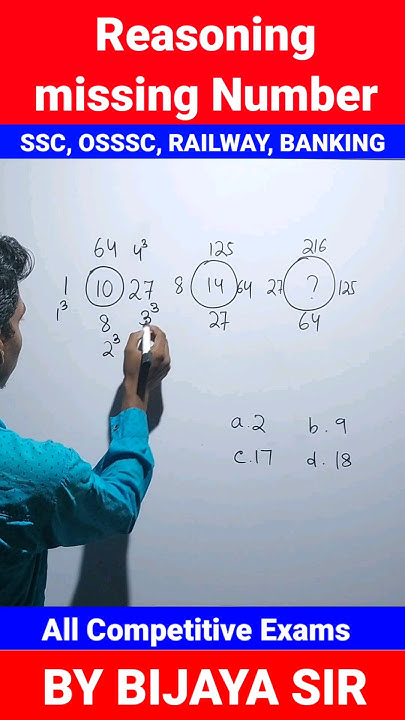 Reasoning
missing Number
SSC, OSSSC, RAILWAY, BANKING
64 4³ 125 216
1 10 27 8 14 64 27 ? 125
1³ 8 3³ 27 64
2³
a. 2 b. 9
c. 17 d. 18
All Competitive Exams
BY BIJAYA SIR